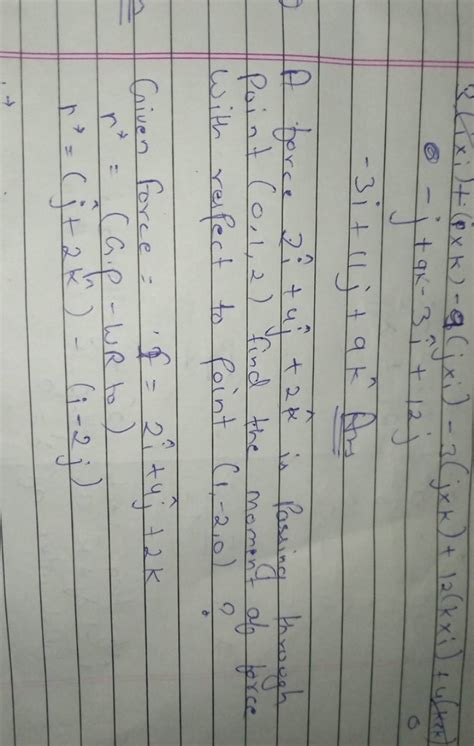 (i×i) + (i×k) - 9(j×i) - 3(j×k) + 12(k×i) + 4(k×k)
0
- j + 9k - 3î + 12j
-3î + 11j + 9k̂ Ans
A force 2î + 4ĵ + 2k̂ is Passing through
Point (0,1,2) find the moment of force
with respect to point (1,-2,0) ?
Given force = = 2î + 4ĵ + 2k
r* = (G.P - WR to)
r* = (ĵ + 2k̂) - (i - 2j)
r*